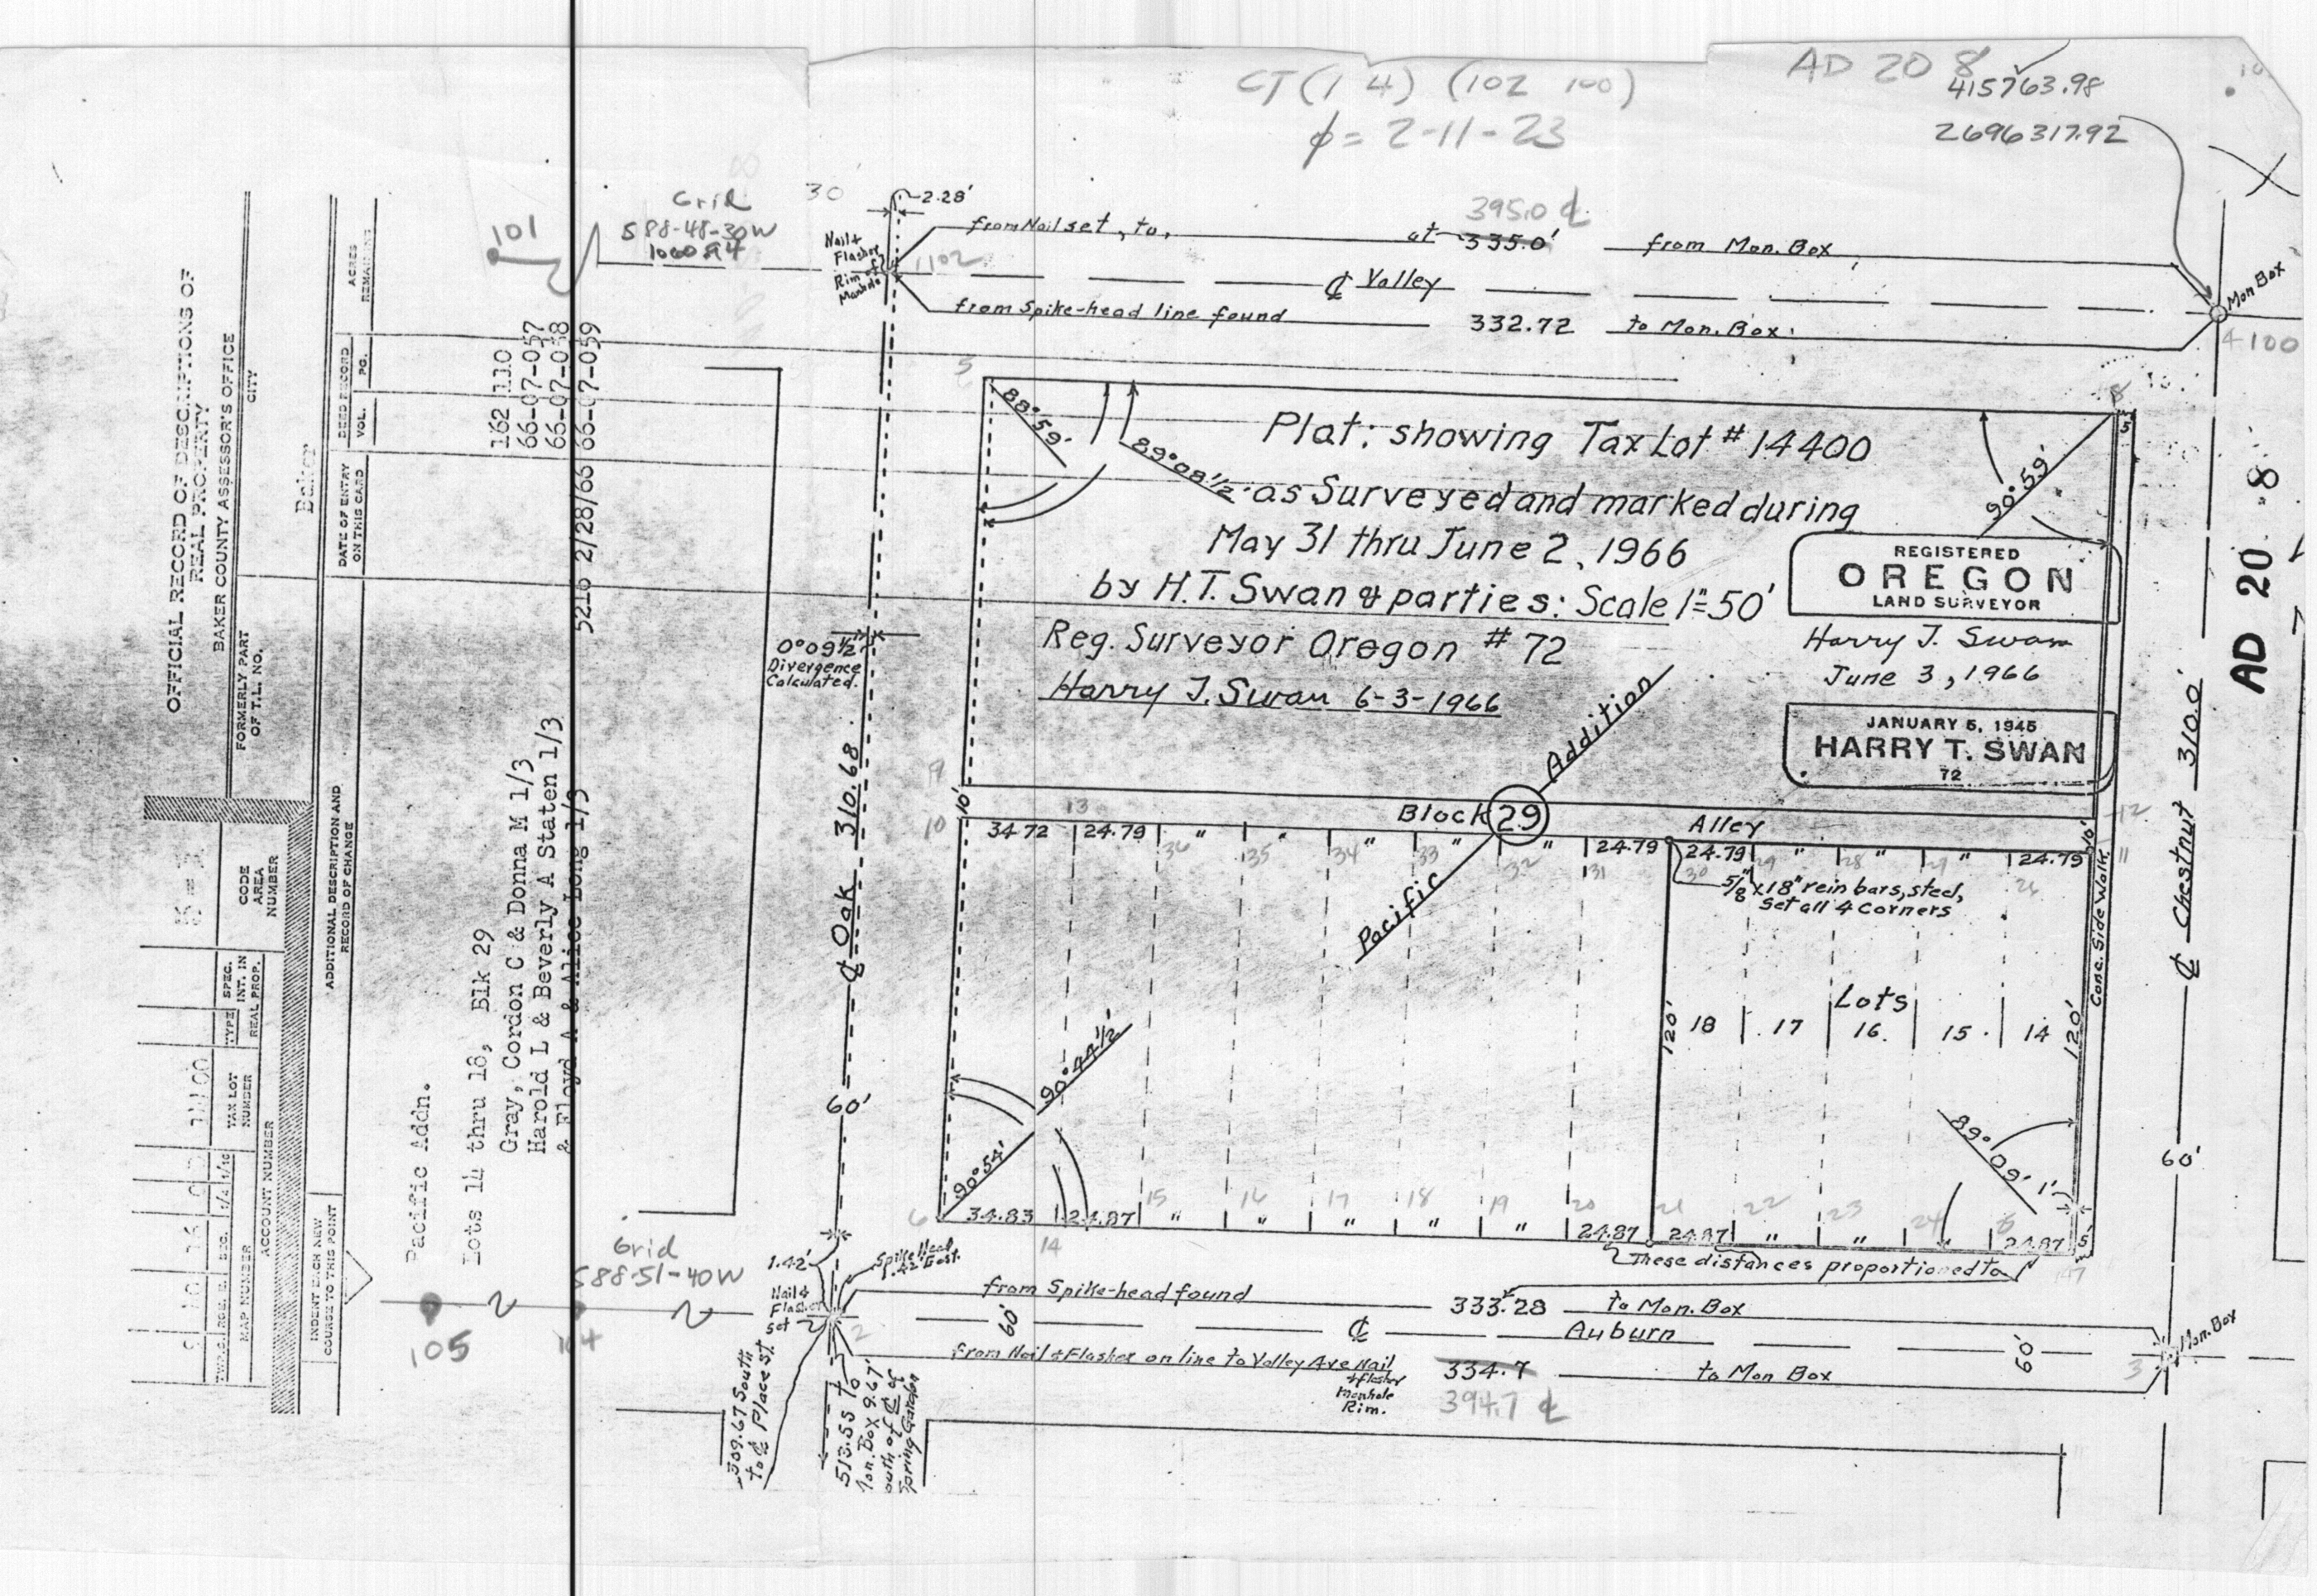 CT (1 4) (102 100)
φ = 2-11-23
AD 20 8
415763.98
2696317.92
101
Grid
S88-48-30W
1060.84
30
2.28'
Nail &
Flasher
Rim of
Manhole
102
from Nail set, to,
395.0 ℄
at 335.0'
from Mon. Box
℄ Valley
from Spike-head line found
332.72
to Mon. Box
Mon Box
4 100
5
8
88°59'
89°08½'
90°59'
5'
Plat: showing Tax Lot # 14400
as Surveyed and marked during
May 31 thru June 2, 1966
by H.T. Swan & parties: Scale 1"=50'
Reg. Surveyor Oregon # 72
Harry T. Swan 6-3-1966
REGISTERED
OREGON
LAND SURVEYOR
Harry T. Swan
June 3, 1966
JANUARY 5, 1945
HARRY T. SWAN
72
AD 20 8
℄ Chestnut 310.0'
60'
0°09½'
Divergence
Calculated.
℄ Oak 310.68
60'
9
10'
10
Block 29
Pacific Addition
Alley
10'
12
11
13
34.72 24.79 " " " " " 24.79 24.79 " " " 24.79
36 35 34 33 32 31 30 29 28 27 26
5/8" x 18" rein bars, steel,
Set all 4 Corners
Conc. Side Walk
120'
Lots
18 17 16 15 14
120'
90°44½'
90°54'
89°09'
1'
15 16 17 18 19 20 21 22 23 24
6
34.83 24.87 " " " " " 24.87 24.87 " " " 24.87
5'
14
7
These distances proportioned to
Grid
S88-51-40W
105
104
1.42'
Spike Head
.42 East.
Nail &
Flasher
set
2
from Spike-head found
333.28
to Mon. Box
60'
℄
Auburn
60'
3
Mon. Box
from Nail & Flasher on line to Valley Ave Nail
& flasher
Manhole
Rim.
334.7
394.7 ℄
to Mon Box
309.67 South
to ℄ Place St.
513.55 to
Mon. Box 9.67'
South of ℄ of
Spring Garden
OFFICIAL RECORD OF DESCRIPTIONS OF
REAL PROPERTY
BAKER COUNTY ASSESSOR'S OFFICE
FORMERLY PART
OF T.L. NO.
CITY
Baker
CODE
AREA
NUMBER
TWP. RGE. SEC. 1/4 1/16
MAP NUMBER
TAX LOT
NUMBER
TYPE
SPEC.
INT. IN
REAL PROP.
ACCOUNT NUMBER
INDENT EACH NEW
COURSE TO THIS POINT
ADDITIONAL DESCRIPTION AND
RECORD OF CHANGE
DATE OF ENTRY
ON THIS CARD
DEED RECORD
VOL. PG.
ACRES
REMAINING
Pacific Addn.
Lots 14 thru 18, Blk 29
162 110
Gray, Gordon C & Donna M 1/3
66-07-057
Harold L & Beverly A Staten 1/3
66-07-058
& Floyd A & Alice Long 1/3
5216 2/28/66 66-07-059